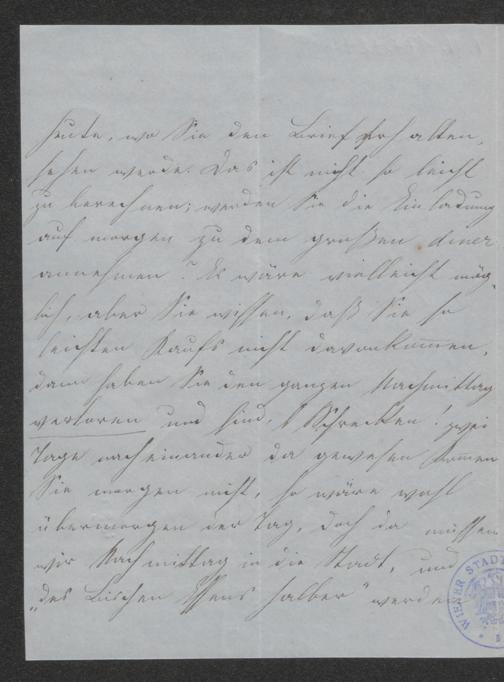 heute, wo Sie den Brief erhalten,
sehen werde. Das ist nicht so leicht
zu berechnen; werden Sie die Einladung
auf morgen zu dem großen diner
annehmen? Es wäre vielleicht mög-
lich, aber Sie wissen, daß Sie so
leichten Kaufs nicht davonkommen,
dann haben Sie den ganzen Nachmittag
verloren und sind, o Schrecken! zwei
Tage nacheinander da gewesen. Kommen
Sie morgen nicht, so wäre wohl
übermorgen der Tag, doch da müssen
wir Nachmittag in die Stadt, und
„des bischen Essens halber" werden
WIENER STADT